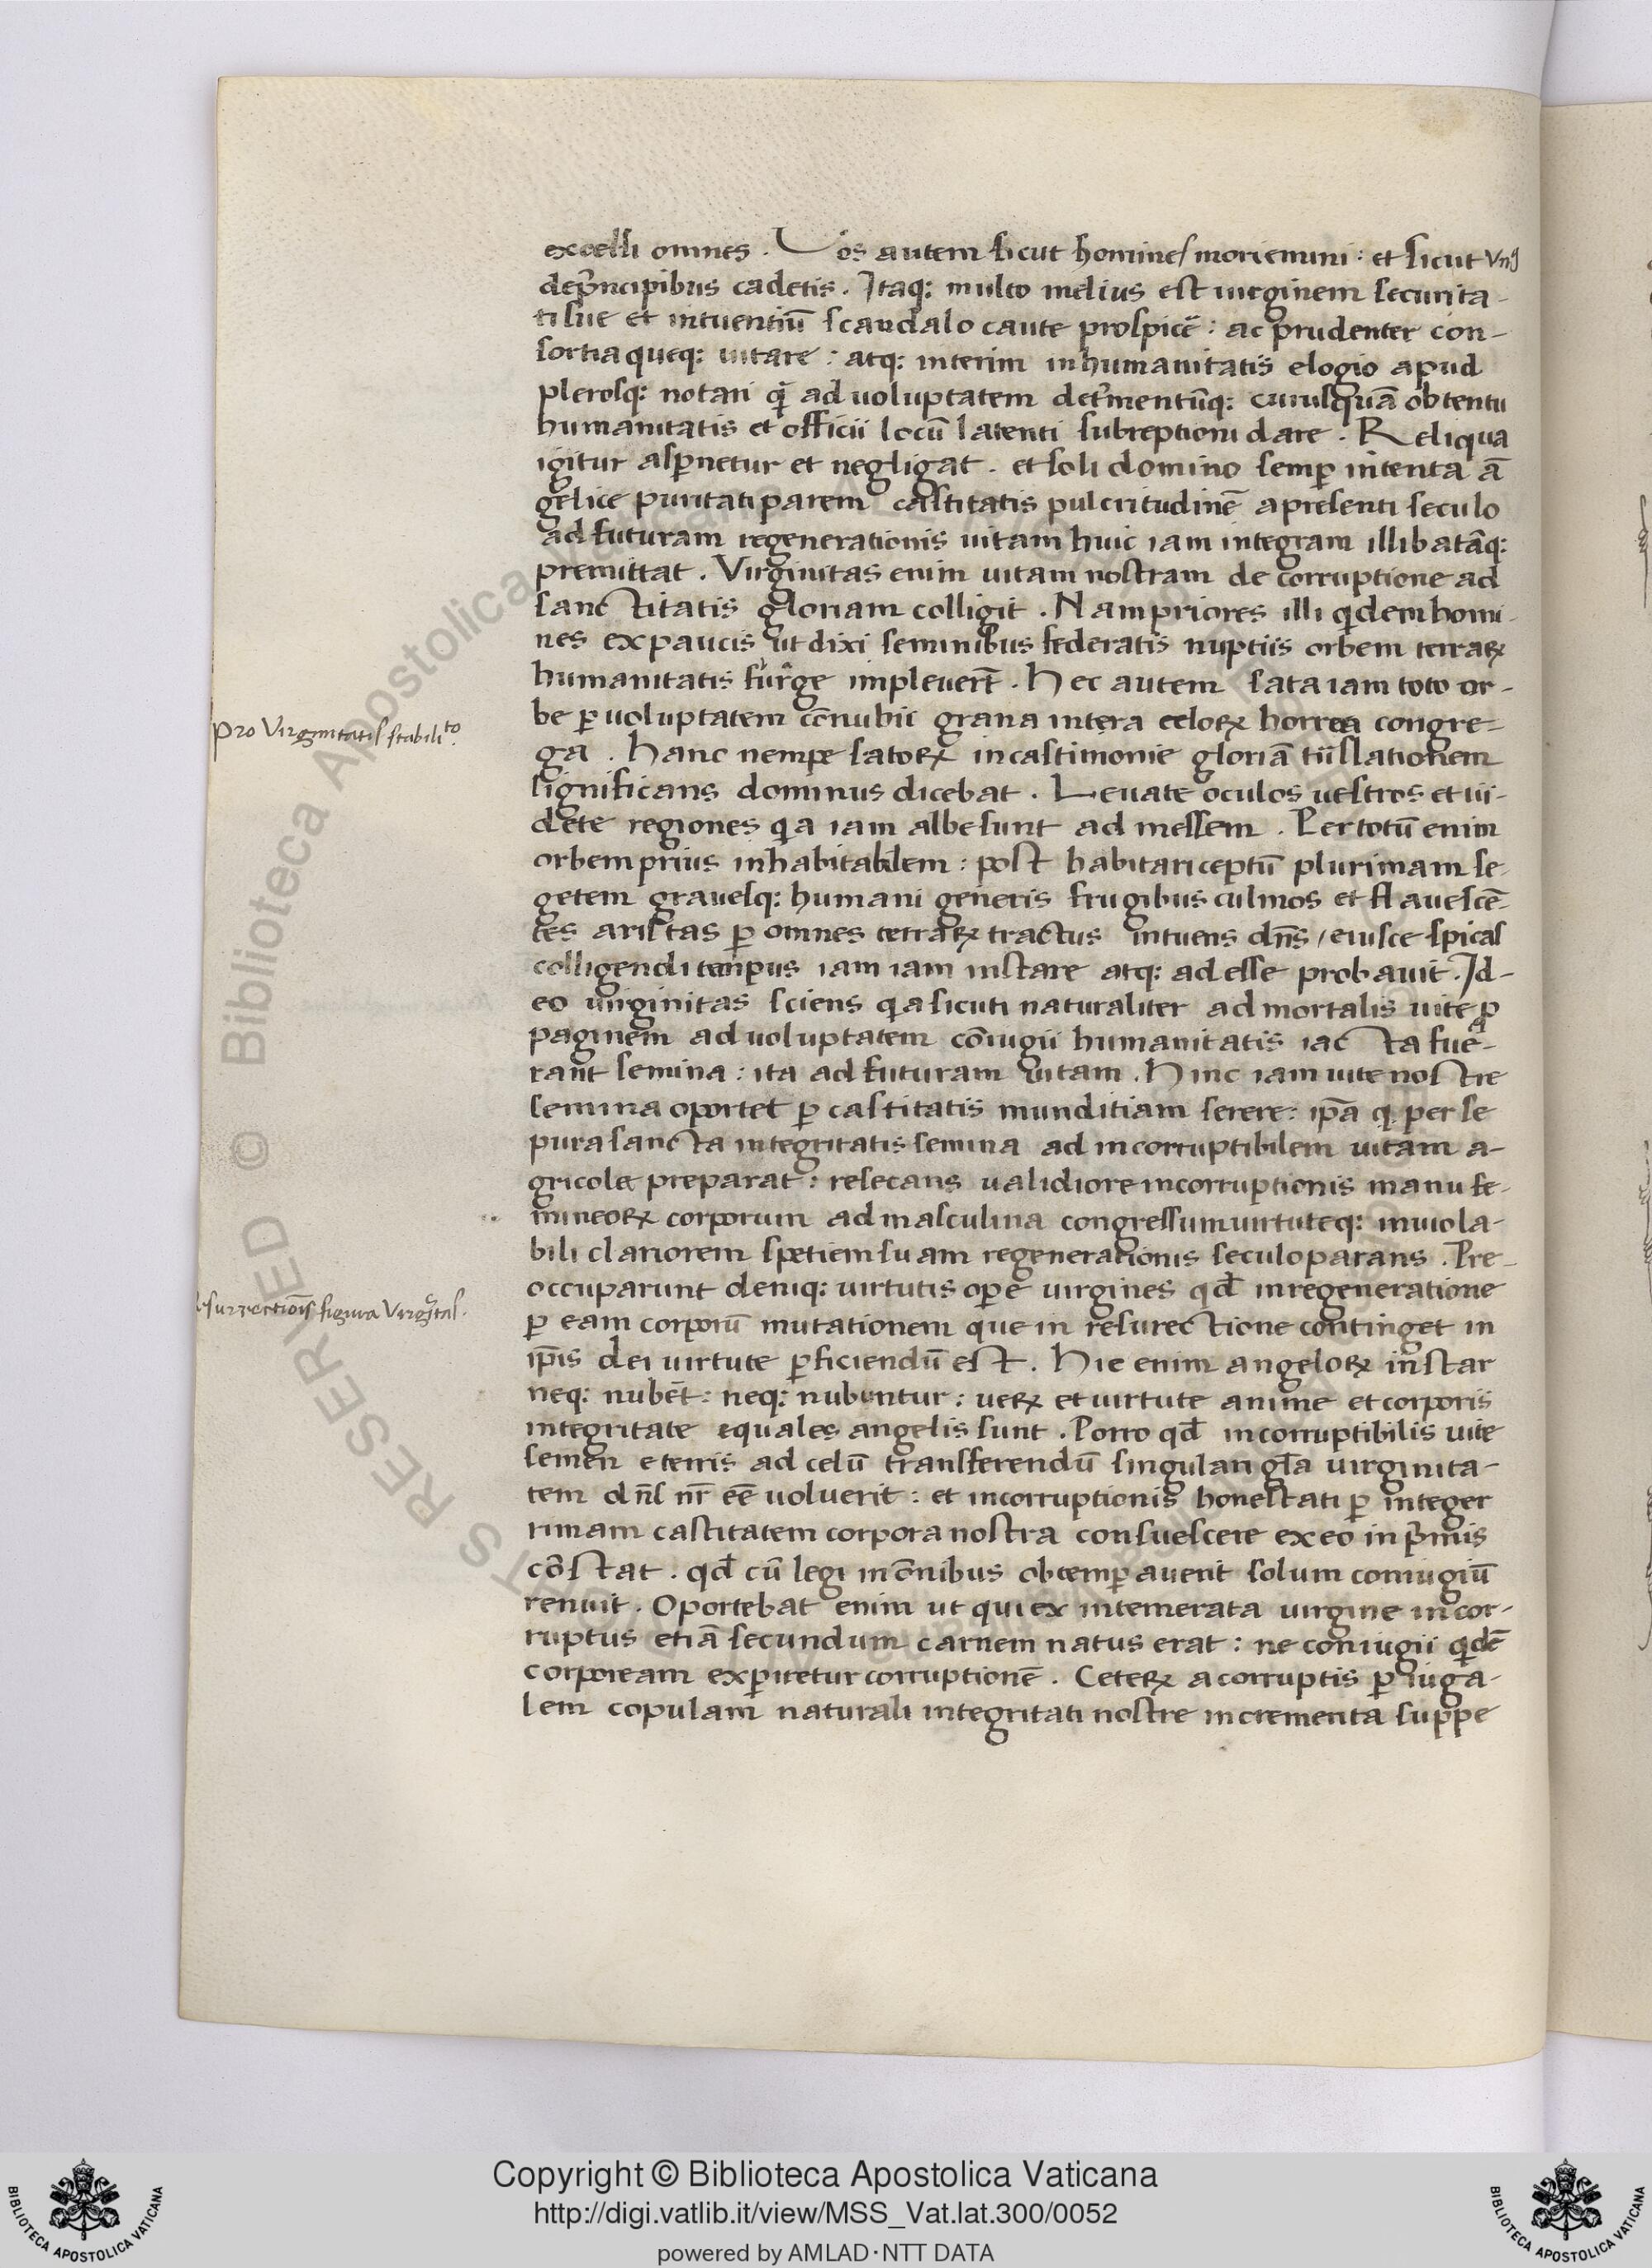 excelsi omnes. Vos autem sicut homines moriemini: et sicut vnꝰ
de p̃ncipibus cadetis. Itaq: multo melius est uirginem securita-
ti sue et intuentiū scandalo caute prospicẽ: ac prudenter con-
sortia queq: uitare: atq: interim inhumanitatis elogio apud
plerosq: notari q̃ ad uoluptatem detrimentūq: cuiusquā obtentu
humanitatis et officii locū latenti subreptioni dare. Reliqua
igitur asꝑnetur et negligat. et soli domino semꝑ intenta ā
gelice puritati parem castitatis pulcritudinē a presenti seculo
ad futuram regenerationis uitam huic iam integram illibatāq:
premittat. Virginitas enim uitam nostram de corruptione ad
sanctitatis gloriam colligit. Nam priores illi qͥdem homi-
nes ex paucis ut dixi seminibus federatis nuptiis orbem terraꝝ
humanitatis fruge impleuert̃. Hec autem sata iam toto or-
be ꝑ uoluptatem cōnubii grana intera celoꝝ horrea congre-
ga. Hanc nempe satoꝝ in castimonie gloriā trāslationem
significans dominus dicebat. Leuate oculos uestros et ui-
dete regiones qͥa iam albe sunt ad messem. Per totū enim
orbem prius inhabitabilem: post habitari ceptū plurimam se-
getem grauesq: humani generis frugibus culmos et flauescē-
tes aristas ꝑ omnes terraꝝ tractus intuens dn̄s / eiusce spicas
colligendi tempus iam iam instare atq: adesse probauit. Id-
eo uirginitas sciens qͥa sicuti naturaliter ad mortalis uite ꝓ
paginem ad uoluptatem cōiugii humanitatis iacta fue-
rant semina: ita ad futuram uitam. Hinc iam uite nostre
semina oportet ꝑ castitatis munditiam serere: ip̄a q per se
pura sancta integritatis semina ad incorruptibilem uitam a-
gricole preparat: resecans ualidiore incorruptionis manu fe-
mineoꝝ corporum ad masculina congressum uirtuteq: inuiola-
bili clariorem spetiem suam regenerationis seculo parans. Pre-
occuparunt deniq: uirtutis ope uirgines qd̄ in regeneratione
ꝑ eam corporū mutationem que in resurectione continget in
ip̄is dei uirtute ꝑficiendū est. Hic enim angeloꝝ instar
neq: nubēt: neq: nubuntur: ueꝝ et uirtute anime et corporis
integritate equales angelis sunt. Porro qd̄ incorruptibilis uite
semen e terris ad celū transferendū singulari gl̄a uirginita-
tem dn̄s nr̄ eē uoluerit: et incorruptionis honestati ꝑ integer
rimam castitatem corpora nostra consuescere ex eo in p̃mis
cōstat. qd̄ cū legi in ōnibus obtemꝑauerit solum coniugiū
renuit. Oportebat enim ut qui ex intemerata uirgine incor-
ruptus etiā secundum carnem natus erat: ne coniugii qͥdē
corpoream exꝑiretur corruptionē. Ceteꝝ a corruptis ꝑ iuga-
lem copulam naturali integritati nostre incrementa suppe
pro Virginitatis stabilito.
Resurrectiōis figura Virgĩtas.
Copyright © Biblioteca Apostolica Vaticana
http://digi.vatlib.it/view/MSS_Vat.lat.300/0052
powered by AMLAD·NTT DATA
BIBLIOTECA APOSTOLICA VATICANA
BIBLIOTECA APOSTOLICA VATICANA